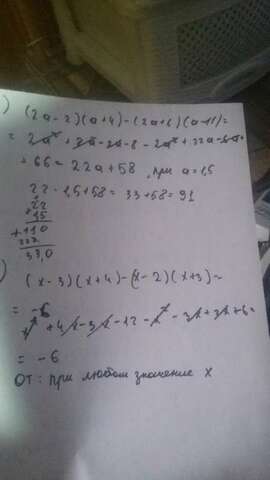 ) (2a-2)(a+4)-(2a+6)(a+11)=
= 2a² + 8a - 2a - 8 - 2a² + 22a - 6a
+ 66 = 22a + 58, при a = 1,5
22 · 1,5 + 58 = 33 + 58 = 91
22
15
+110
22
33,0
) (x-3)(x+4)-(x-2)(x+3)=
-6
= x² + 4x - 3x - 12 - x² - 3x + 3x + 6 =
= -6
От: при любом значение x